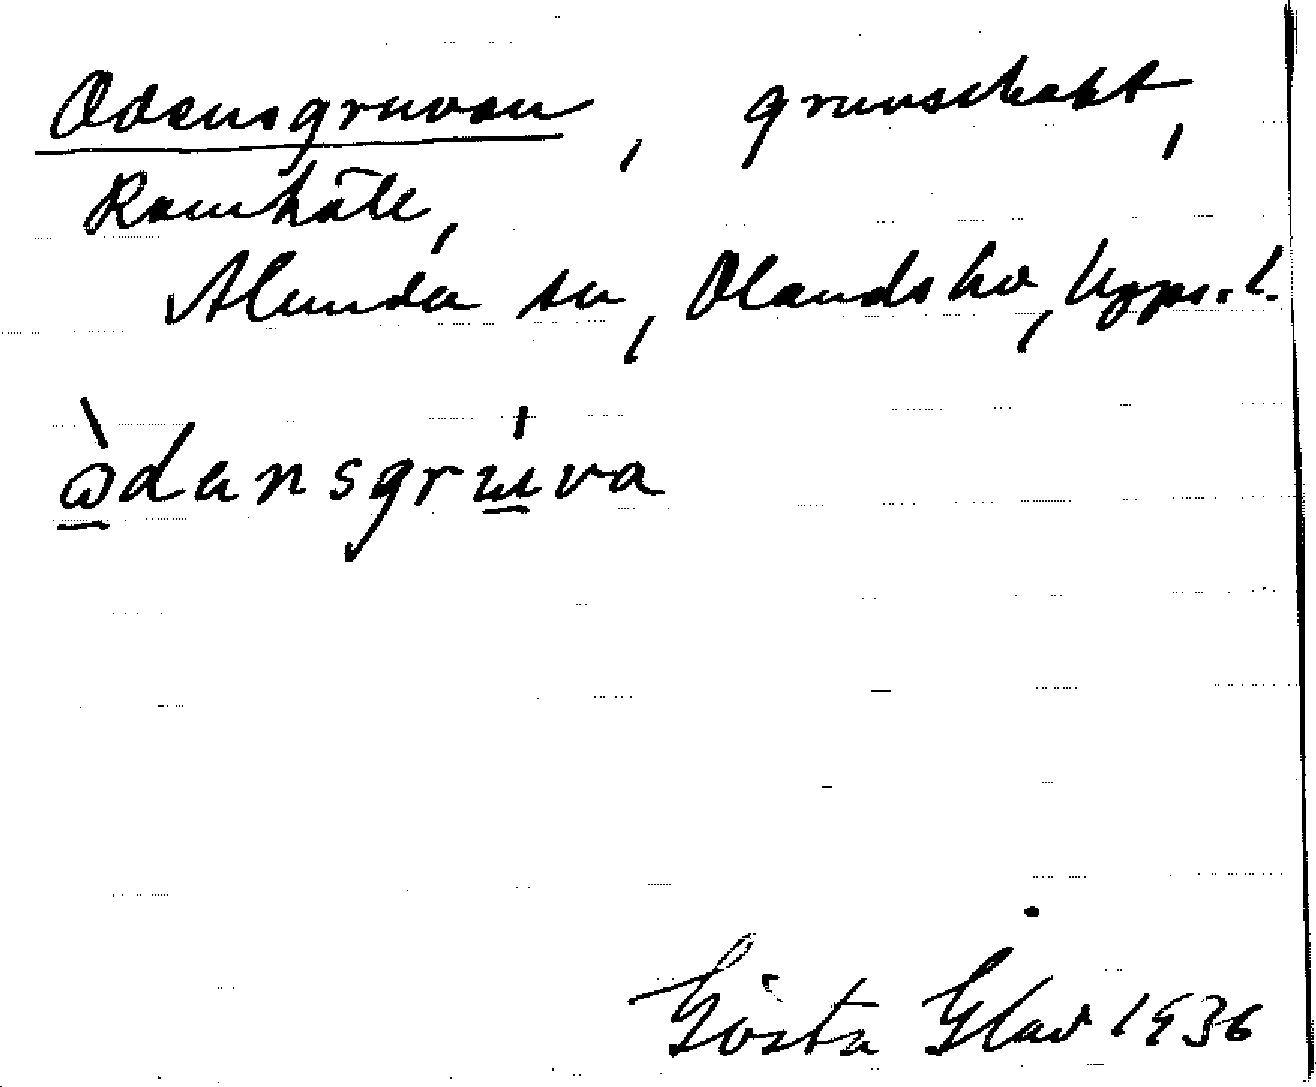 Odensgruvan, gruvschakt,
Ramhäll,
Alunda sn, Olands hd, Upps. l.
ò̱dansgru̱va
Gösta Glad 1936